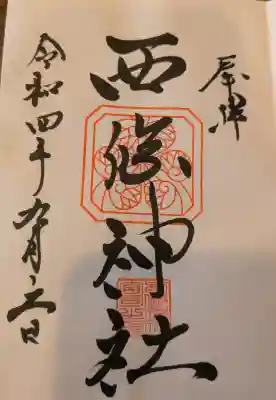 奉拝
西脇神社
令和四年九月二日